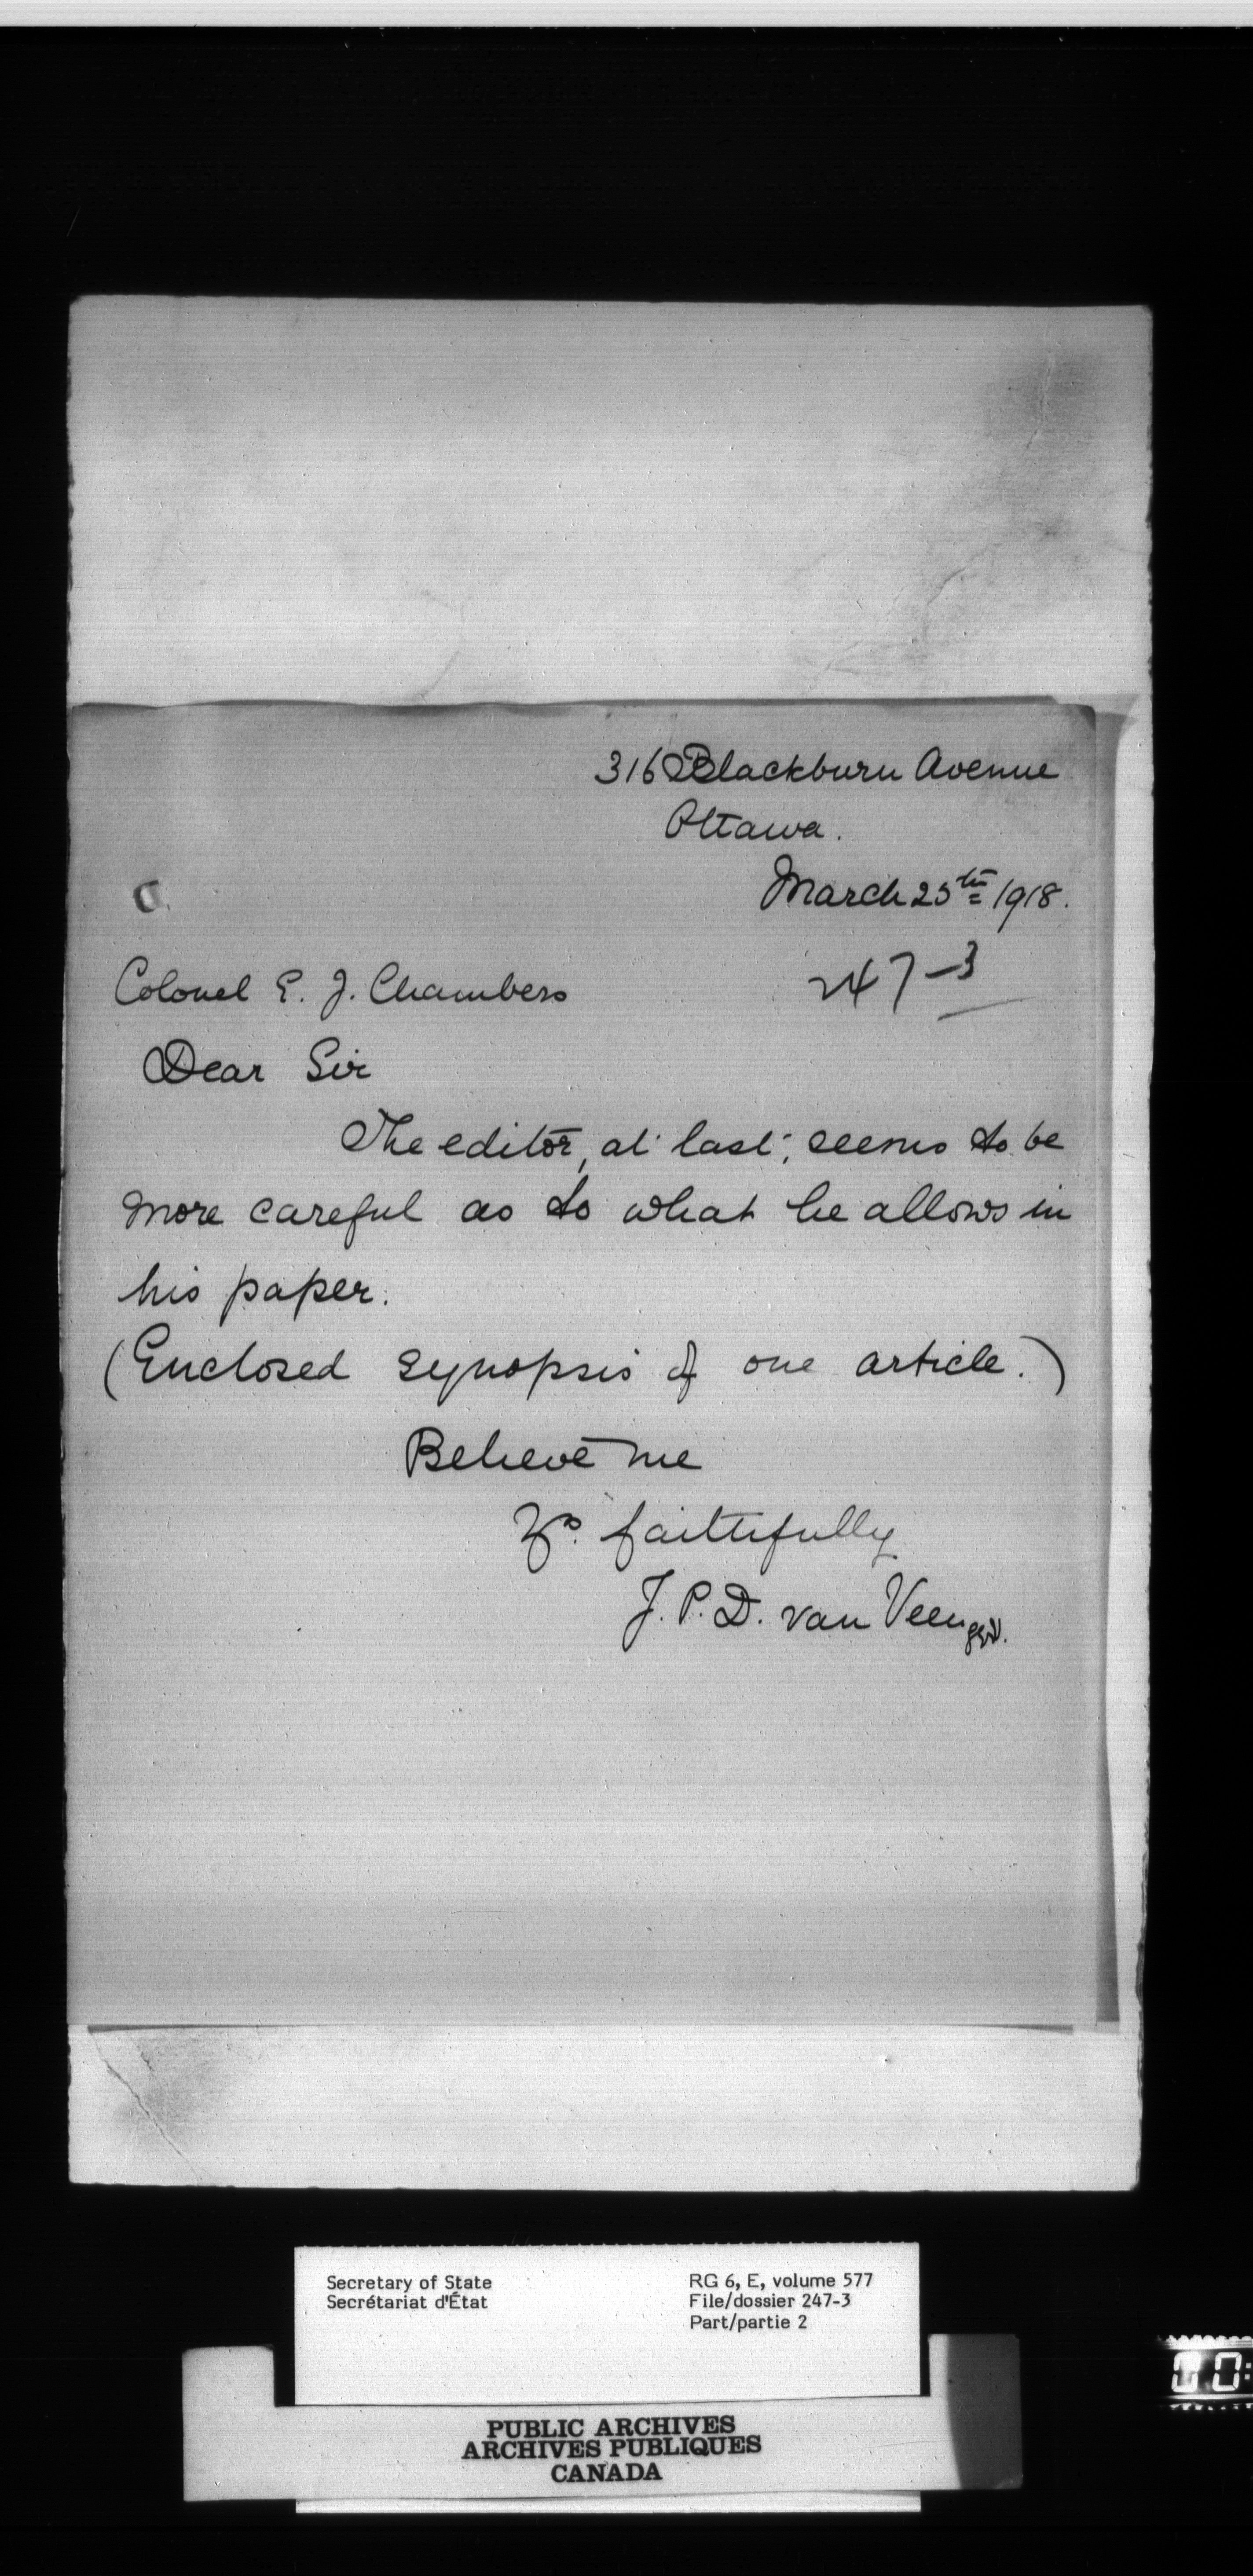 316 Blackburn Avenue
Ottawa.
March 25th 1918.
247-3
Colonel E. J. Chambers
Dear Sir
The editor, at last, seems to be
more careful as to what he allows in
his paper.
(Enclosed synopsis of one article.)
Believe me
Yrs. faithfully
J. P. D. van Veen
Secretary of State
Secrétariat d'État
RG 6, E, volume 577
File/dossier 247-3
Part/partie 2
PUBLIC ARCHIVES
ARCHIVES PUBLIQUES
CANADA